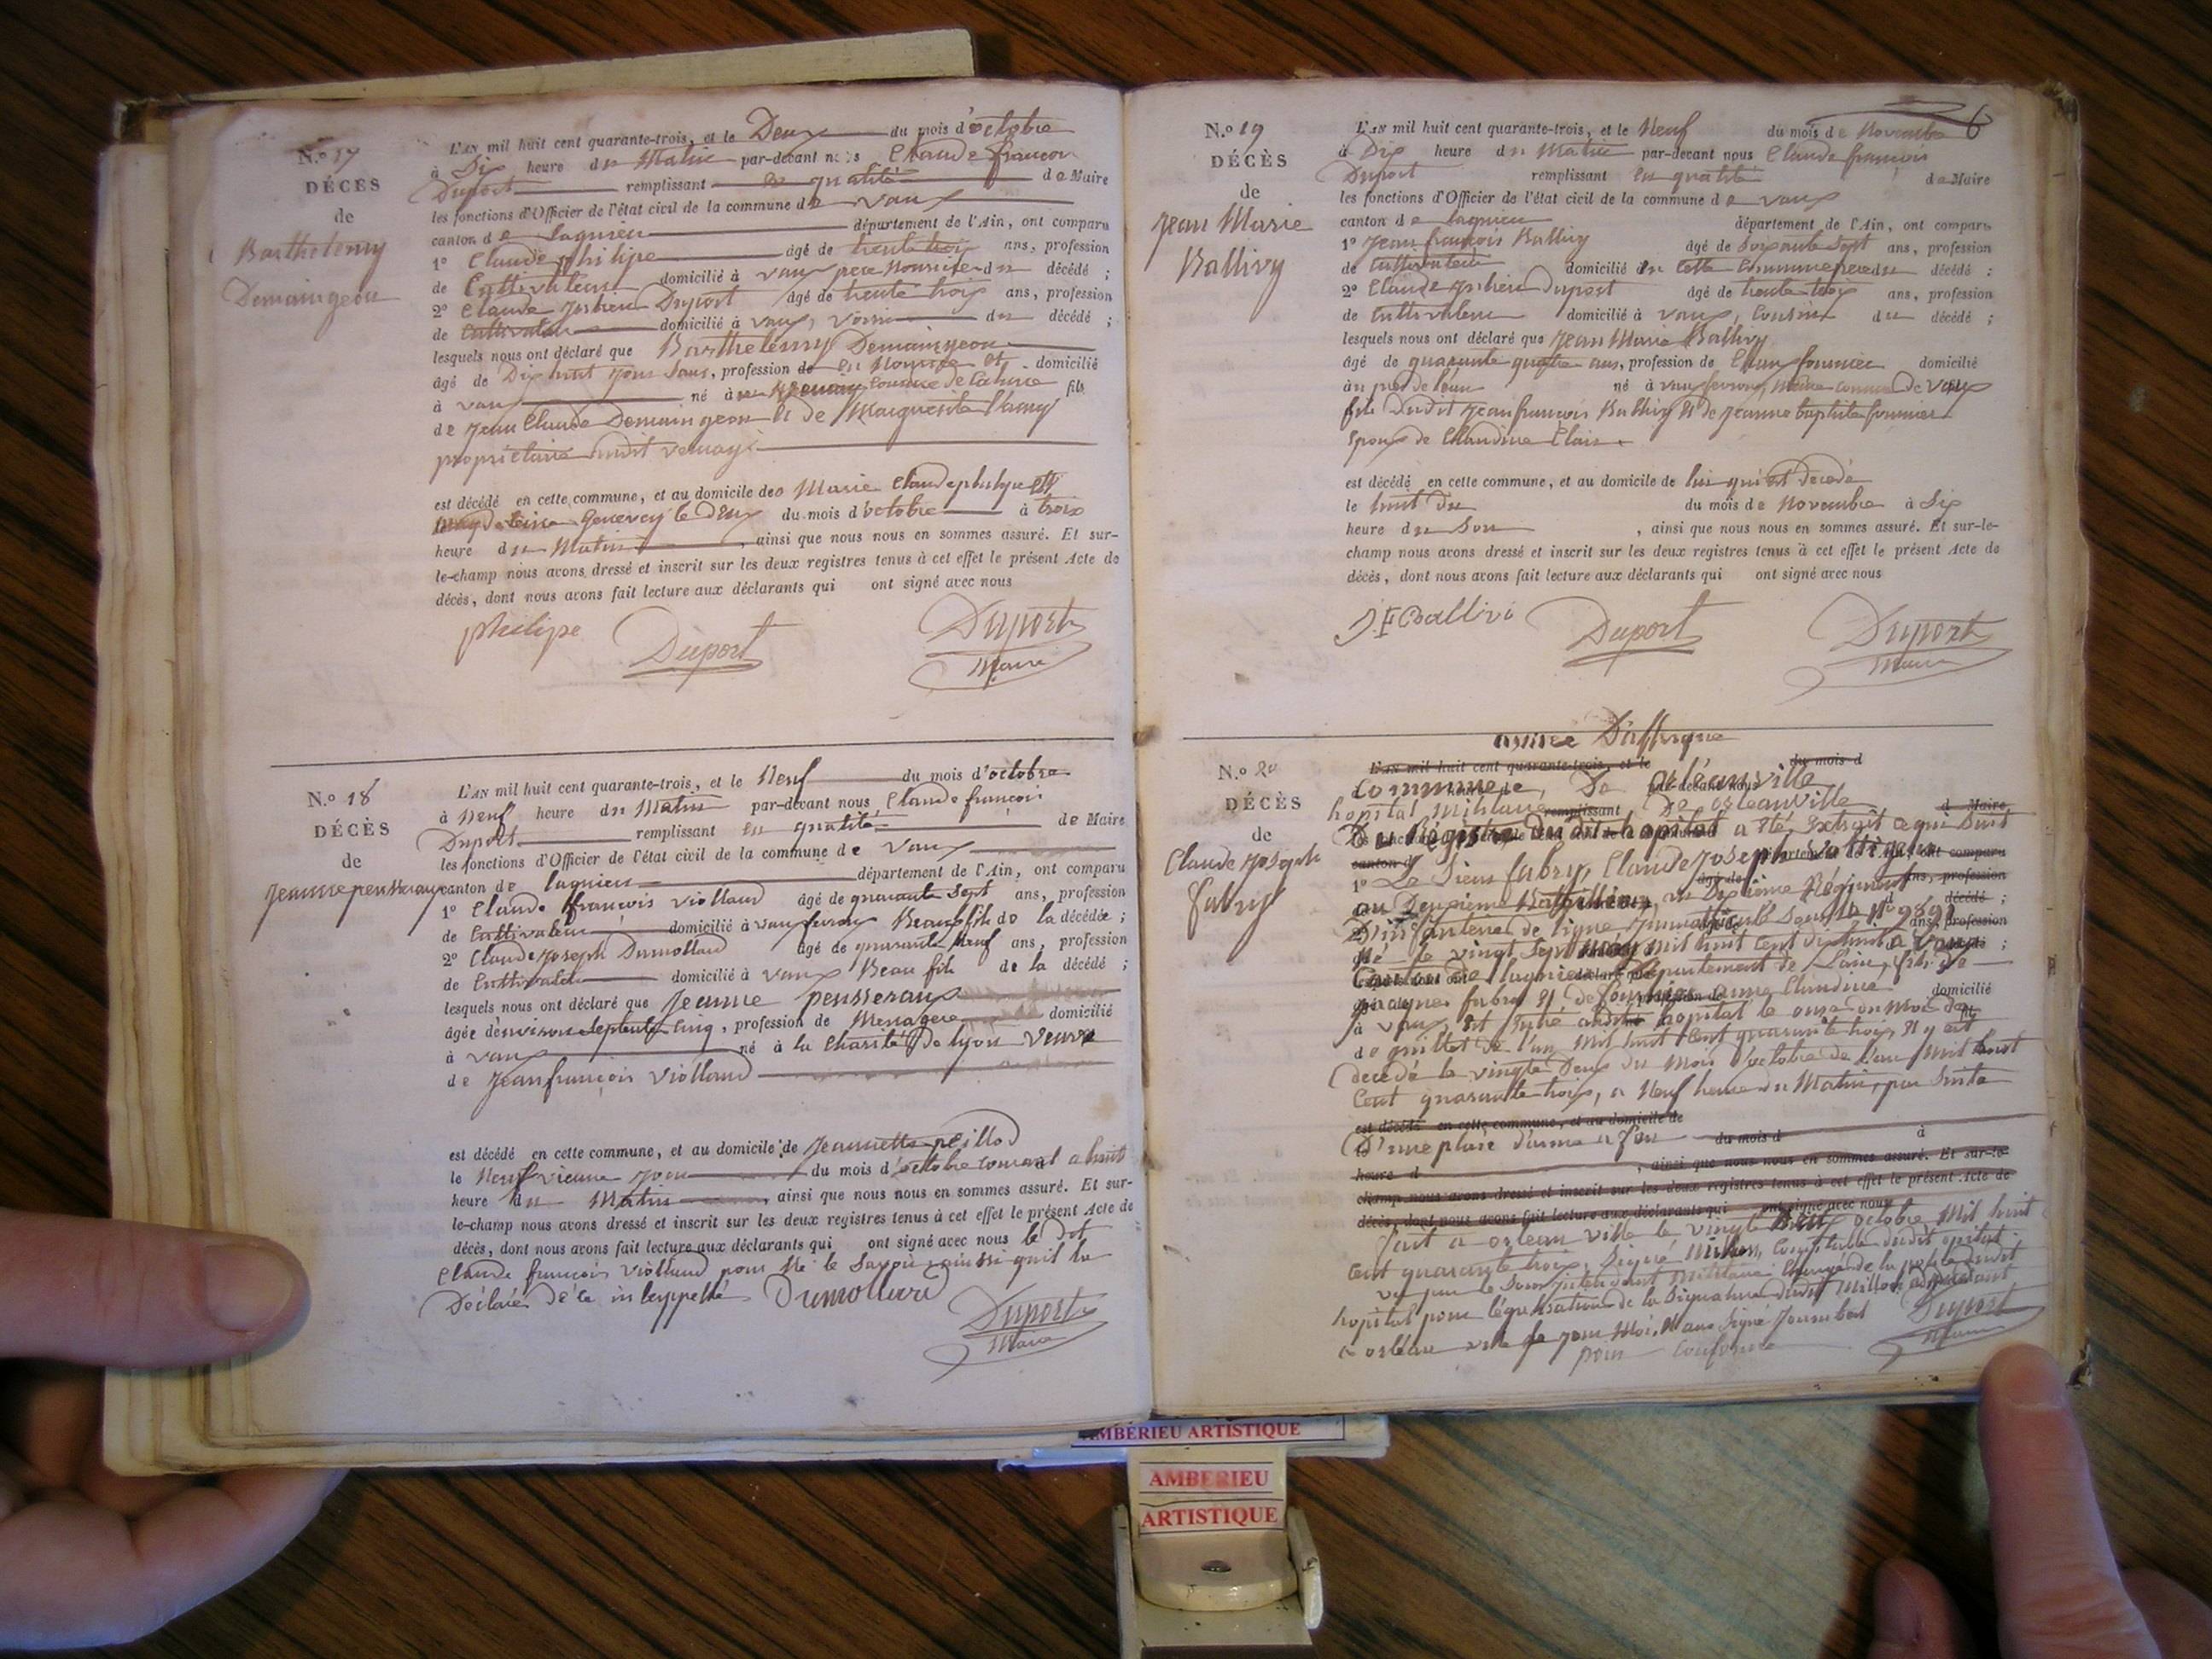 N.º 17
DÉCÈS
de
Barthelemy
Demaingeon
L'AN mil huit cent quarante-trois, et le Deux du mois d'octobre
à Six heure du Matin par-devant nous Claude françois
Duport remplissant en qualité de Maire
les fonctions d'Officier de l'état civil de la commune de vaux
canton de lagnieu département de l'Ain, ont comparu
1º Claude philipe âgé de trente trois ans, profession
de Cultivateur domicilié à vaux pere Nouricier du décédé ;
2º Claude Duport âgé de trente trois ans, profession
de Cultivateur domicilié à vaux, voisin du décédé ;
lesquels nous ont déclaré que Barthelemy Demaingeon
âgé de Dix huit jours sans, profession de en Nourice et domicilié
à vaux né à commune de fils
de Jean Claude Demaingeon et de Marguerite
propriétaire audit
est décédé en cette commune, et au domicile de Marie Claude philipe et
Magdeleine Genevey le deux du mois d'octobre à trois
heure du Matin, ainsi que nous nous en sommes assuré. Et sur-
le-champ nous avons dressé et inscrit sur les deux registres tenus à cet effet le présent Acte de
décès, dont nous avons fait lecture aux déclarants qui ont signé avec nous
philipe Duport Duport
Maire
N.º 18
DÉCÈS
de
Jeanne pensseraux
L'AN mil huit cent quarante-trois, et le Neuf du mois d'octobre
à Neuf heure du Matin par-devant nous Claude françois
Duport remplissant en qualité de Maire
les fonctions d'Officier de l'état civil de la commune de vaux
canton de lagnieu département de l'Ain, ont comparu
1º Claude françois viollaud âgé de quarante Sept ans, profession
de Cultivateur domicilié à vaux fevroux Beau fils de la décédée ;
2º Claude Joseph Dumollard âgé de quarante Neuf ans, profession
de Cultivateur domicilié à vaux Beau fils de la décédé ;
lesquels nous ont déclaré que Jeanne pensseraux
âgée d'environ Septente Cinq, profession de Menagere domicilié
à vaux né à la Charité de lyon veuve
de Jean françois viollaud
est décédé en cette commune, et au domicile de Jeannette peillod
le Neufvieme jour du mois d'octobre courant a huit
heure du Matin, ainsi que nous nous en sommes assuré. Et sur-
le-champ nous avons dressé et inscrit sur les deux registres tenus à cet effet le présent Acte de
décès, dont nous avons fait lecture aux déclarants qui ont signé avec nous le dit
Claude françois viollaud pour Ne le Savoir ainsi quil la
Déclaré de ce interppellé Dumollard
Duport
Maire
N.º 19
DÉCÈS
de
Jean Marie
Ballivy
6
L'AN mil huit cent quarante-trois, et le Neuf du mois de Novembre
à Dix heure du Matin par-devant nous Claude françois
Duport remplissant en qualité de Maire
les fonctions d'Officier de l'état civil de la commune de vaux
canton de lagnieu département de l'Ain, ont comparu
1º Jean françois Ballivy âgé de Soixante Sept ans, profession
de Cultivateur domicilié en cette Commune pere du décédé ;
2º Claude Duport âgé de trente trois ans, profession
de Cultivateur domicilié à vaux, Cousin du décédé ;
lesquels nous ont déclaré que Jean Marie Ballivy
âgé de quarante quatre ans, profession de Chaux fournier domicilié
né à vaux fevroux, même commune de vaux
fils dudit Jean françois Ballivy et de Jeanne baptiste fournier
Epoux de Claudine Clair
est décédé en cette commune, et au domicile de lui qui est Décédé
le huit du du mois de Novembre à Six
heure du Soir, ainsi que nous nous en sommes assuré. Et sur-le-
champ nous avons dressé et inscrit sur les deux registres tenus à cet effet le présent Acte de
décès, dont nous avons fait lecture aux déclarants qui ont signé avec nous
JF Ballivi Duport Duport
Maire
N.º 20
DÉCÈS
de
Claude Joseph
fabry
armee D'affrique
L'AN mil huit cent quarante-trois, et le du mois d
Commune, De orléanville
hopital Militaire De orleanville
Du Régistre du dit hopital a été Extrait ce qui Suit
1º Le Sieur fabry, Claude Joseph
au Deuxieme Bataillion, au Régiment
D'infanterie de ligne, immatriculé Sous le Nº 9891
né le vingt Sept may mil huit Cent dix huit a vaux
Canton de lagnieu Département de Lain, fils de
fabry et de anne Claudine
à vaux, Est Entré audit hopital le onze du Moi de
de juillet de l'an Mil huit Cent quarante trois, Et y est
decedé le vingt Deux du Mois D'octobre de l'an Mil huit
Cent quarante trois, a Neuf heure du Matin, par Suite
est décédé en cette commune, et au domicile de
D'une plaie d'arme a feu du mois d à
heure d, ainsi que nous nous en sommes assuré. Et sur-le-
champ nous avons dressé et inscrit sur les deux registres tenus à cet effet le présent Acte de
décès, dont nous avons fait lecture aux déclarants qui ont signé avec nous
fait a orlean ville le vingt octobre Mil huit
Cent quarante trois, Signé Comptable dudit opital
vu par le Sous intendant militaire Chargé de la police dudit
hopital pour légalisation de la Signature dudit
a orléan ville Moi, Et an Signé
pour Conforme
Duport
Maire
AMBERIEU ARTISTIQUE
AMBERIEU
ARTISTIQUE